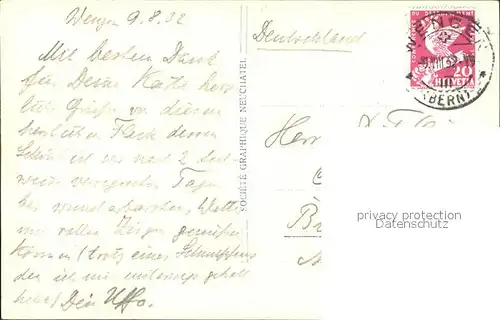 Wengen 9.8.32
Mit besten Dank
für Deine Karte herz
liche Grüße von diesem
herrlichen Fleck dessen
Schönheit wir nach 2 teil-
weise verregneten Tagen
bei wunderbarstem Wetter
in vollen Zügen genießen
können (trotz eines Schnupfens
den ich mir unterwegs geholt
habe) Dein Uffo.
SOCIÉTÉ GRAPHIQUE NEUCHÂTEL
Deutschland
WENGEN
(BERN)
20
HELVETIA
Herr
privacy protection
Datenschutz